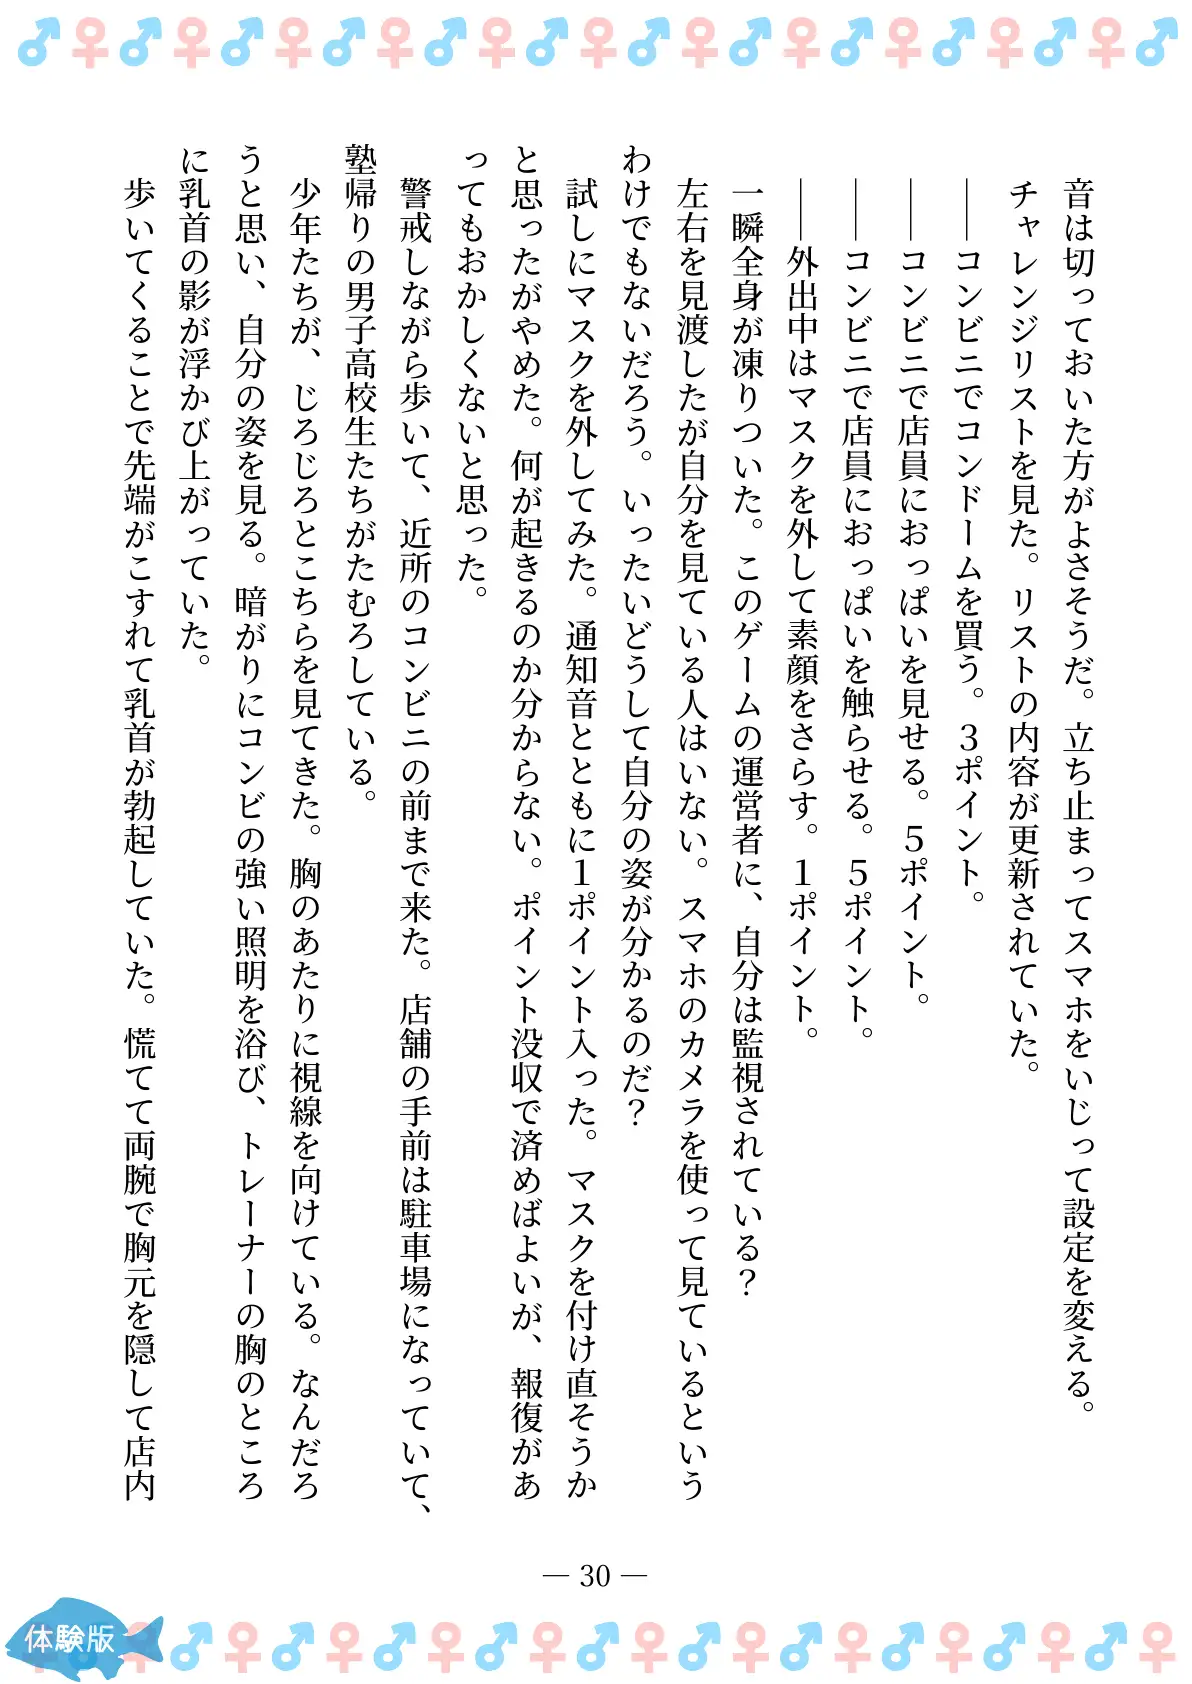 音は切っておいた方がよさそうだ。立ち止まってスマホをいじって設定を変える。
チャレンジリストを見た。リストの内容が更新されていた。
――コンビニでコンドームを買う。３ポイント。
――コンビニで店員におっぱいを見せる。５ポイント。
――コンビニで店員におっぱいを触らせる。５ポイント。
――外出中はマスクを外して素顔をさらす。１ポイント。
一瞬全身が凍りついた。このゲームの運営者に、自分は監視されている？
左右を見渡したが自分を見ている人はいない。スマホのカメラを使って見ているという
わけでもないだろう。いったいどうして自分の姿が分かるのだ？
試しにマスクを外してみた。通知音とともに１ポイント入った。マスクを付け直そうか
と思ったがやめた。何が起きるのか分からない。ポイント没収で済めばよいが、報復があ
ってもおかしくないと思った。
警戒しながら歩いて、近所のコンビニの前まで来た。店舗の手前は駐車場になっていて、
塾帰りの男子高校生たちがたむろしている。
少年たちが、じろじろとこちらを見てきた。胸のあたりに視線を向けている。なんだろ
うと思い、自分の姿を見る。暗がりにコンビの強い照明を浴び、トレーナーの胸のところ
に乳首の影が浮かび上がっていた。
歩いてくることで先端がこすれて乳首が勃起していた。慌てて両腕で胸元を隠して店内
― 30 ―
体験版